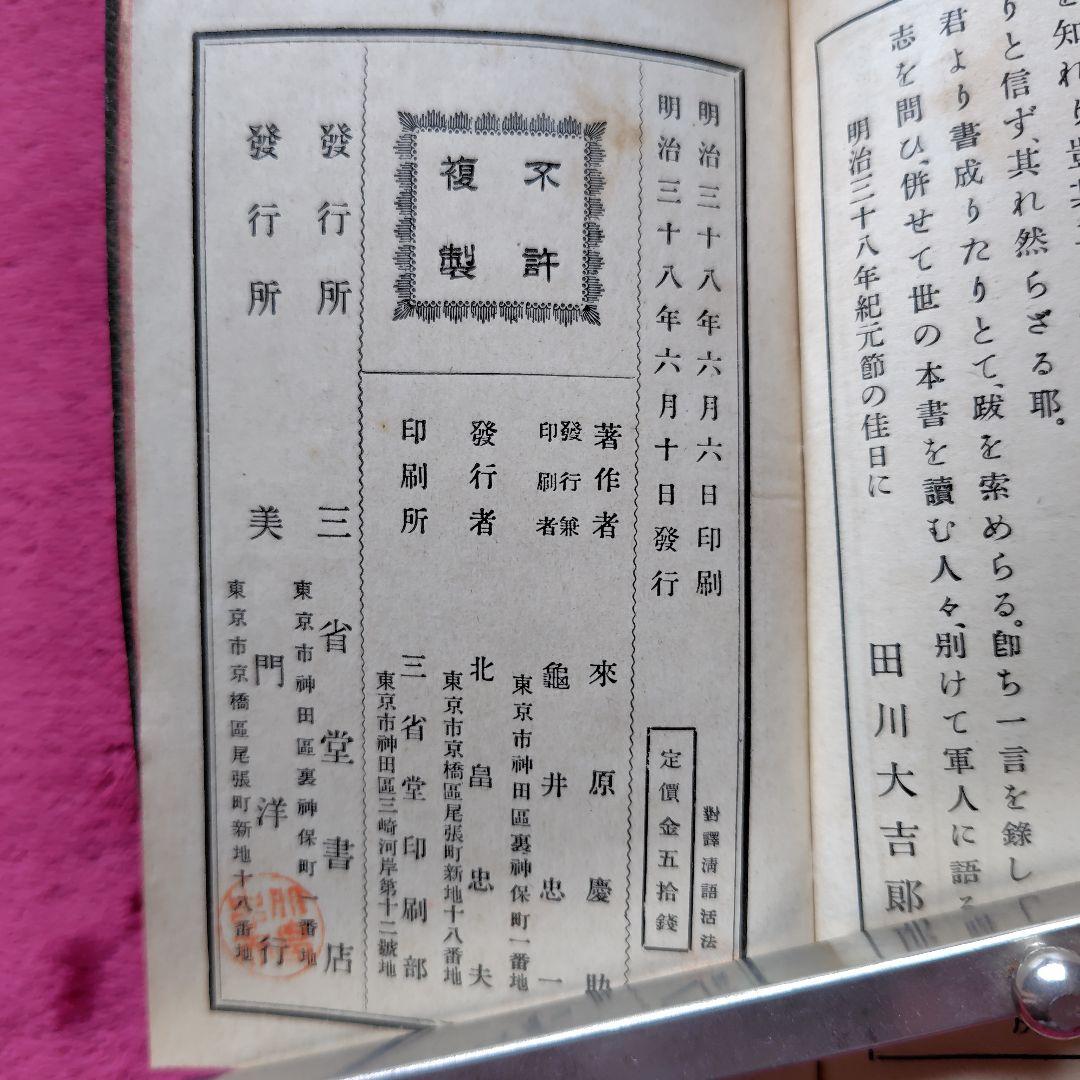 を知れり豈其
りと信ず、其れ然らざる耶。
君より書成りたりとて、跋を索めらる。卽ち一言を錄し
志を問ひ、併せて世の本書を讀む人々、別けて軍人に語る
明治三十八年紀元節の佳日に
田川大吉郞
對譯淸語活法
明治三十八年六月六日印刷
明治三十八年六月十日發行
定價金五拾錢
不許
複製
著作者 來原慶助
發行兼
印刷者 龜井忠一
東京市神田區裏神保町一番地
發行者 北畠忠夫
東京市京橋區尾張町新地十八番地
印刷所 三省堂印刷部
東京市神田區三崎河岸第十二號地
發行所 三省堂書店
東京市神田區裏神保町一番地
發行所 美門洋行
東京市京橋區尾張町新地十八番地